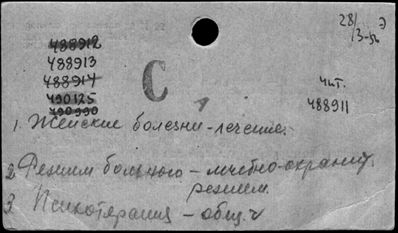 28/ Э
488912
3-
488913
488914
чит.
490125
С
488911
490990
1. Женские болезни - лечение.
2. Режим больного - лечебно-охранит.
режим.
3. Психотерапия - общ.